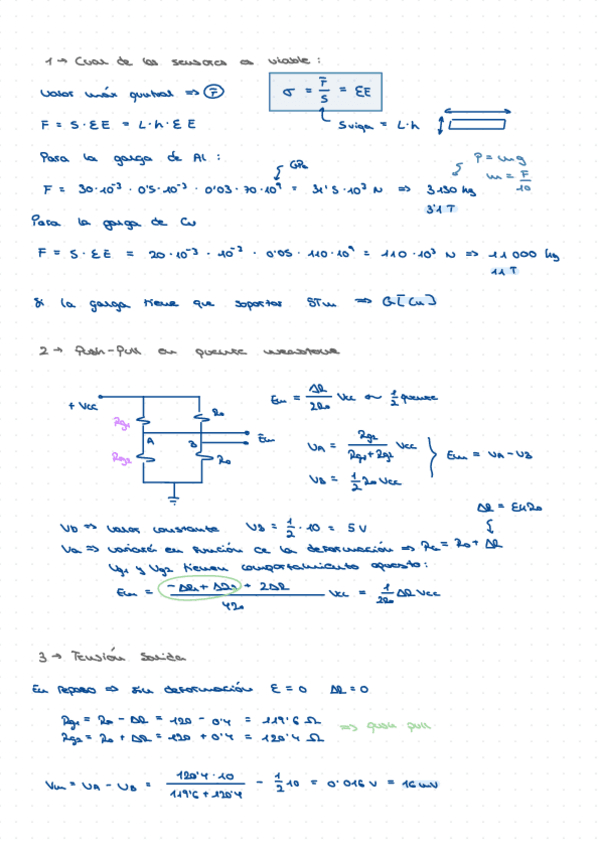 1 → Cual de los sensores es viable:
Valor más puntual => F̄
σ = F̄/S = EE
F = S · EE = L·h·E E
Sviga = L·h
Para la garga de Al:
GPa
P = mg
m = F/10
F = 30·10⁻³ · 0'5·10⁻³ · 0'03 · 70·10⁹ = 31'5·10³ N => 3130 kg
3'1 T
Para la garga de Cu
F = S · EE = 20·10⁻³ · 10⁻² · 0'05 · 110·10⁹ = 110·10³ N => 11000 kg
11 T
Si la garga tiene que soportar 5Tm => G[Cu]
2 → Push-Pull en puente weastone
+ Vcc
Rg1
R0
A
B
Em
Rg2
R0
Em = ΔR/2R0 Vcc ~ 1/2 puente
VA = Rg2/Rg1+Rg2 Vcc
Em = VA - VB
VB = 1/2 R0 Vcc
ΔR = E4R0
Vb => valor constante VB = 1/2 · 10 = 5V
Va => variará en función de la deformación => RL = R0 + ΔR
Vg1 y Vg2 tienen comportamiento opuesto:
Em = -ΔR1 + ΔR1 + 2ΔR / 4R0 Vcc = 1/2R0 ΔR Vcc
3 → Tensión Salida
En reposo => sin deformación E = 0 ΔR = 0
Rg1 = R0 - ΔR = 120 - 0'4 = 119'6 Ω
=> push pull
Rg2 = R0 + ΔR = 120 + 0'4 = 120'4 Ω
Vm = VA - VB = 120'4 · 10 / 119'6 + 120'4 - 1/2 10 = 0'016 V = 16 mV